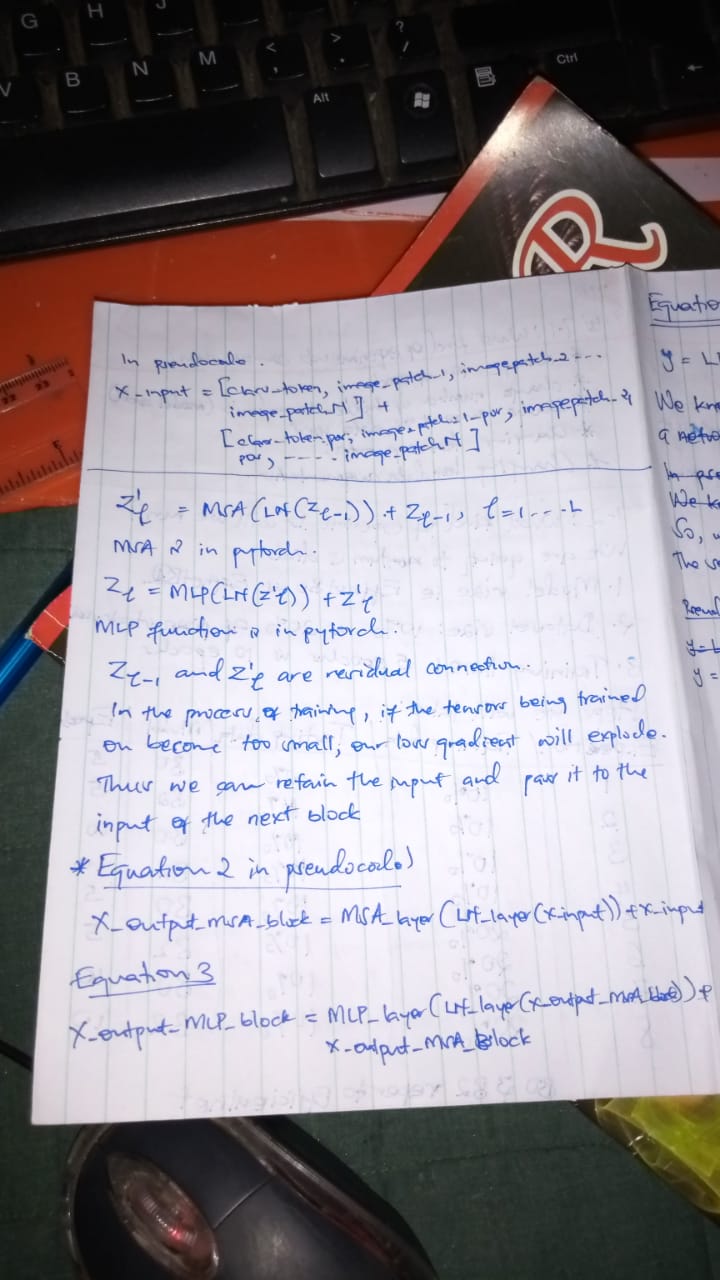 G H J
V B N M < , > . ? /
Alt Ctrl
R
In pseudocode.
X_input = [class_token, image_patch_1, image_patch_2 ...
image_patch_N] +
[class_token_pos, image_patch_1_pos, image_patch_2
pos, ---- image_patch_N]
Z'ℓ = MSA(LN(Zℓ-1)) + Zℓ-1, ℓ=1...L
MSA is in pytorch.
Zℓ = MLP(LN(Z'ℓ)) + Z'ℓ
MLP function is in pytorch.
Zℓ-1 and Z'ℓ are residual connection.
In the process of training, if the tensors being trained
on become too small, our loss gradient will explode.
Thus we can retain the input and pass it to the
input of the next block
* Equation 2 in pseudocode)
X_output_MSA_block = MSA_layer(LN_layer(X_input)) + X_input
Equation 3
X_output_MLP_block = MLP_layer(LN_layer(X_output_MSA_block)) +
X_output_MSA_Block
Equatio
y = L
We kno
a
We k
So, u
The
y =